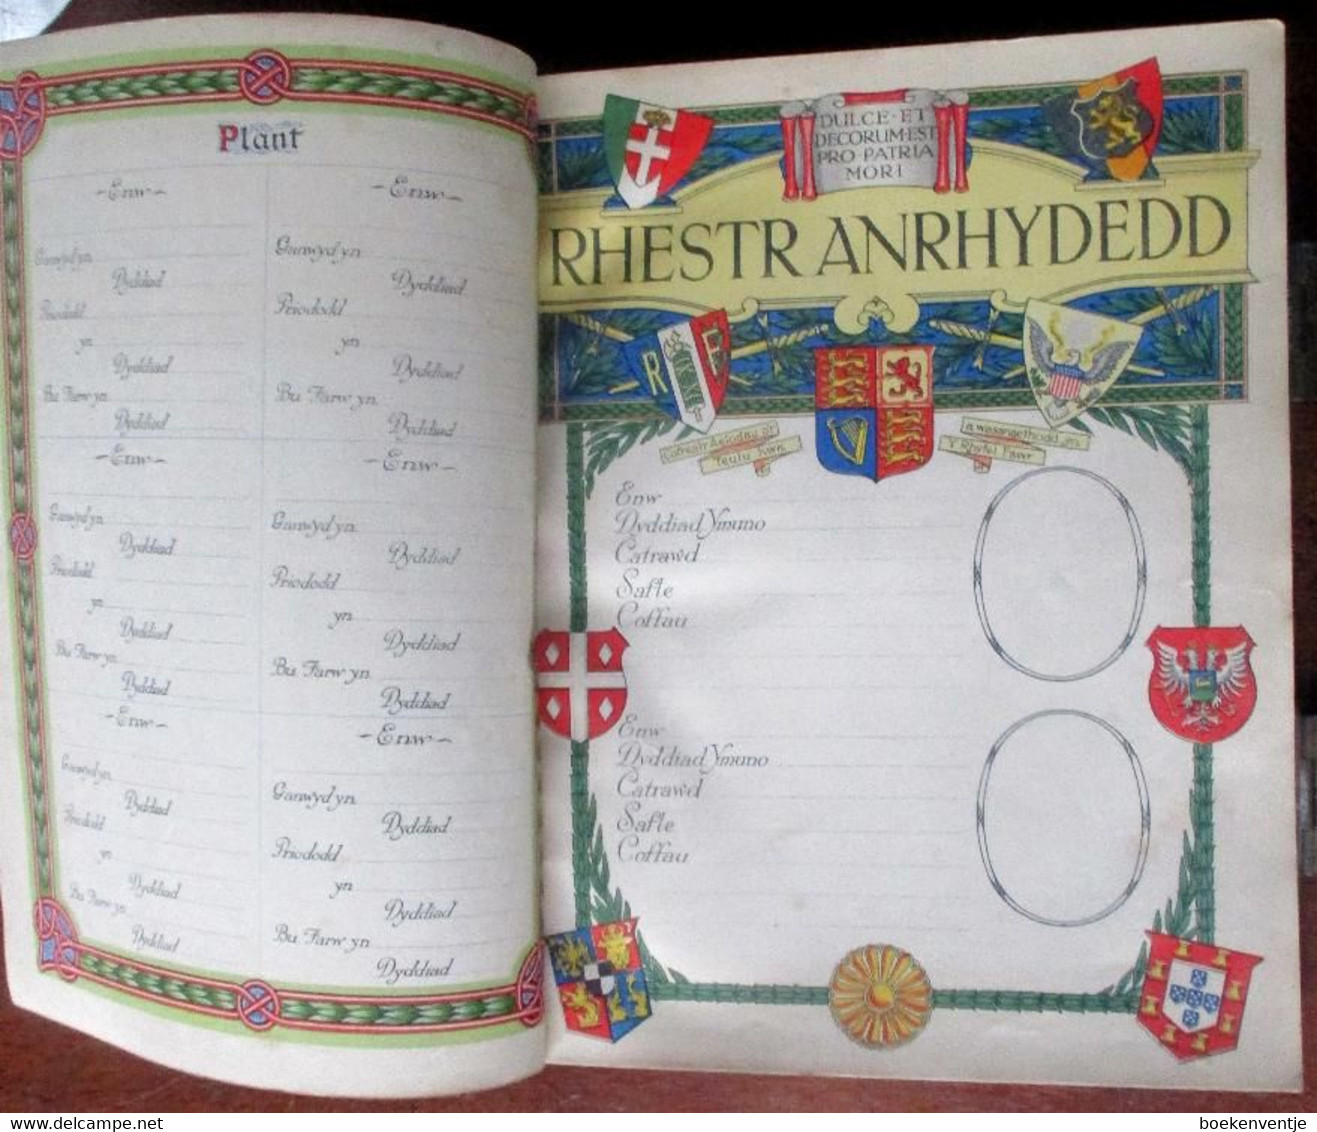 Plant
-Enw-
Ganwyd yn
Dyddiad
Priododd
yn
Dyddiad
Bu Farw yn
Dyddiad
-Enw-
Ganwyd yn
Dyddiad
Priododd
yn
Dyddiad
Bu Farw yn
Dyddiad
-Enw-
Ganwyd yn
Dyddiad
Priododd
yn
Dyddiad
Bu Farw yn
Dyddiad
-Enw-
Ganwyd yn
Dyddiad
Priododd
yn
Dyddiad
Bu Farw yn
Dyddiad
-Enw-
Ganwyd yn
Dyddiad
Priododd
yn
Dyddiad
Bu Farw yn
Dyddiad
-Enw-
Ganwyd yn
Dyddiad
Priododd
yn
Dyddiad
Bu Farw yn
Dyddiad
DULCE·ET
DECORUM·EST
PRO·PATRIA
MORI
RHESTR ANRHYDEDD
R F
Aelodau o'r
Teulu hwn
a wasanaethodd yn
Y Rhyfel Fawr
Enw
Dyddiad Ymuno
Catrawd
Safle
Coffau
Enw
Dyddiad Ymuno
Catrawd
Safle
Coffau
www.delcampe.net
boekenventje